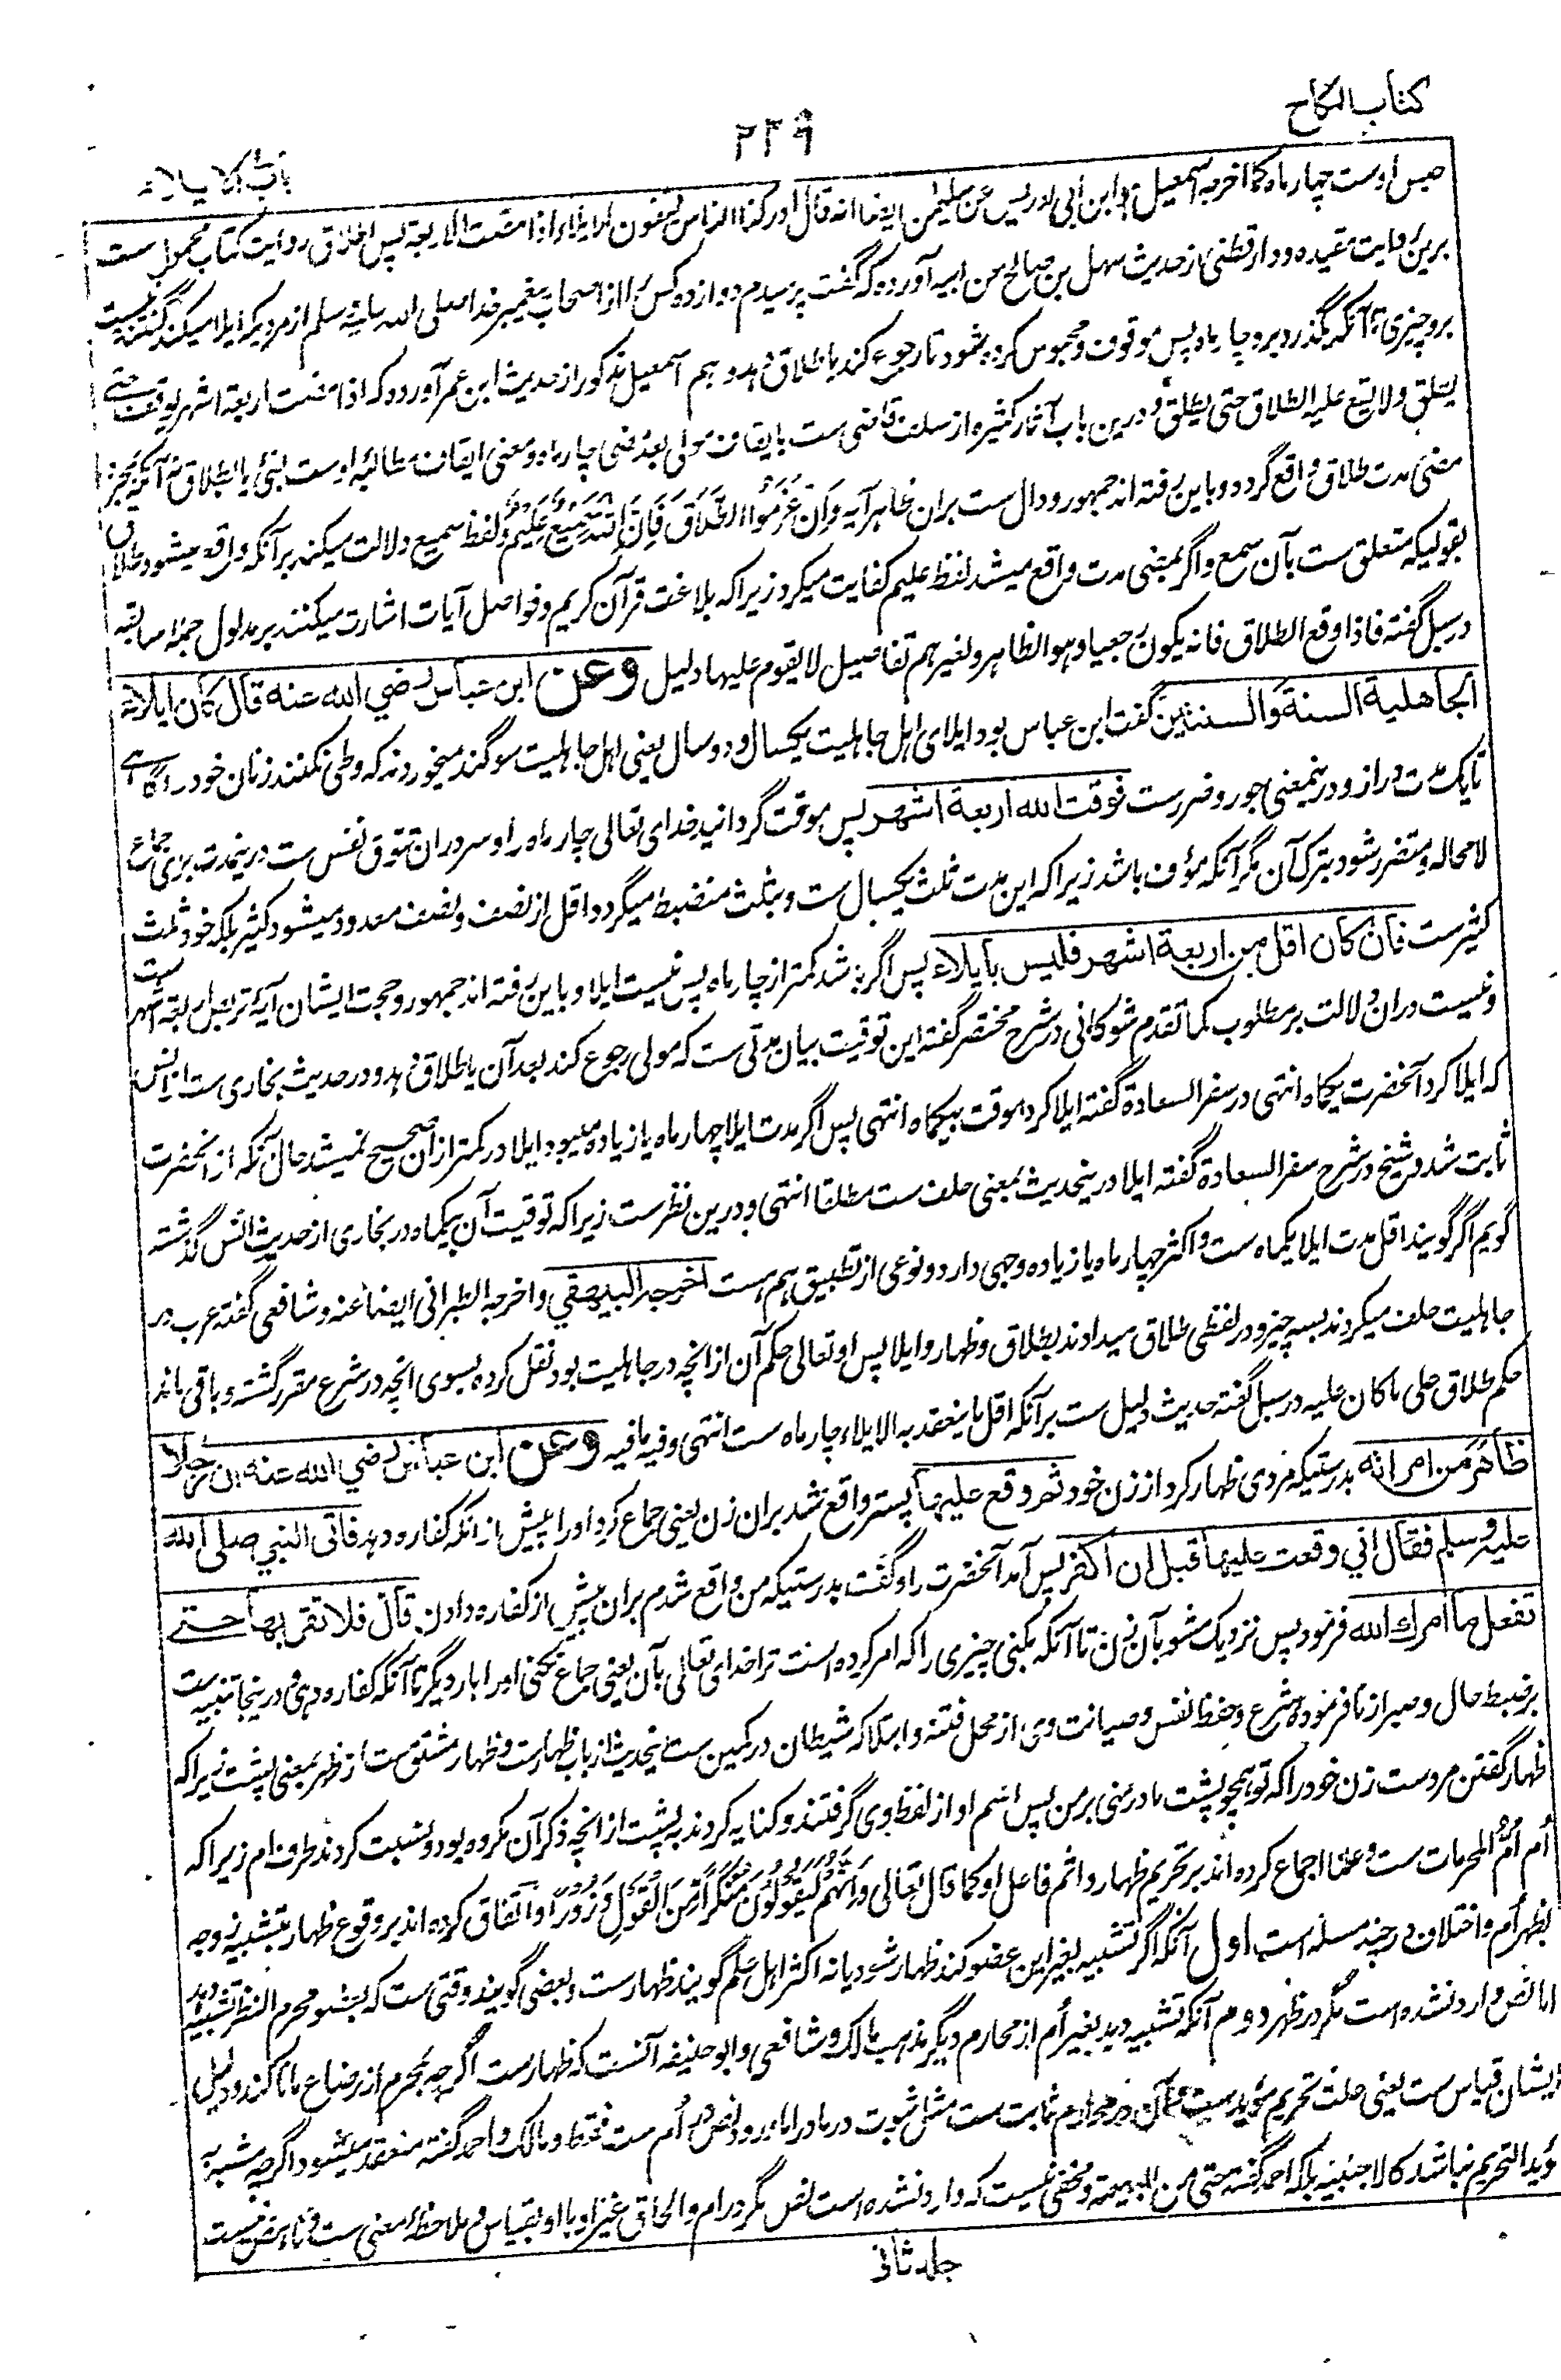 كتاب النكاح
۲۲۹
باب الايلاء
حبس اوست چهار ماه كما اخرجه اسمعيل هو ابن ابى ادريس عن سليمن ايضا انه قال ادركنا الناس يقفون الايلاء اذا مضت الاربعة پس اطلاق روايت كتاب محمول ست
برين روايت مقيده و دارقطنى از حديث سهل بن صالح عن ابيه آورده كه گفت پرسيدم دوازده كس را از اصحاب پيغمبر خدا صلى الله عليه وسلم از مرديكه ايلا ميكند گفتند نيست
برو چيزى تا آنكه بگذرد برو چار ماه پس موقوف و محبوس كرده شود تا رجوع كند يا طلاق دهد و هم اسمعيل مذكور از حديث ابن عمر آورده كه اذا مضت اربعة اشهر يوقف حتى
يطلق ولا يقع عليه الطلاق حتى يطلق و درين باب آثار كثيره از سلف قاضى ست بايقاف مولى بعد مضى چار ماه و معنى ايقاف مطالبه اوست بفئ يا بطلاق نه آنكه بمجرد
مضى مدت طلاق واقع گردد و باين رفته اند جمهور و دال ست بران ظاهر آيه وَاِنْ عَزَمُوا الطَّلَاقَ فَاِنَّ اللّٰهَ سَمِيْعٌ عَلِيْمٌ و لفظ سميع دلالت ميكند بر آنكه واقع ميشود طلاق
بقوليكه متعلق ست بآن سمع و اگر بمضى مدت واقع ميشد لفظ عليم كفايت ميكرد زيرا كه بلاغت قرآن كريم و فواصل آيات اشارت ميكنند بر مدلول جمله سابقه
در سبل گفته فاذا وقع الطلاق فانه يكون رجعيا وهو الظاهر ولغيرهم تفاصيل لا يقوم عليها دليل وعن ابن عباس رضي الله عنه قال كان ايلاء
الجاهلية السنة والسنتين گفت ابن عباس بود ايلاى اهل جاهليت يكسال و دو سال يعنى اهل جاهليت سوگند ميخوردند كه وطى نكنند زنان خود را گاهے
تا يك مدت دراز و درينمعنى جور و ضررست فوقت الله اربعة اشهر پس موقت گردانيد خداى تعالى چار ماه را و سر دران توق نفس ست درينمدت براى جماع
لا محاله و متضرر شود بترك آن مگر آنكه مؤف باشد زيرا كه اين مدت ثلث يكسال ست و بثلث منضبط ميگردد اقل از نصف و نصف معدود ميشود كثير بلكه خود ثلث
كثيرست فان كان اقل من اربعة اشهر فليس بايلاء پس اگر باشد كمتر از چار ماه پس نيست ايلا و باين رفته اند جمهور و حجت ايشان آيه تربص اربعة اشهر ست
و نيست دران دلالت بر مطلوب كما تقدم شوكانى در شرح مختصر گفته اين توقيت بيان مدتى ست كه مولى رجوع كند بعد آن يا طلاق دهد و در حديث بخارى ست از انس
كه ايلا كرد آنحضرت يكماه انتهى در سفر السعادة گفته ايلا كرد موقت بيكماه انتهى پس اگر مدت ايلا چهار ماه يا زياده ميبود ايلا در كمتر ازان صحيح نميشد حال آنكه از آنحضرت
ثابت شد و شيخ در شرح سفر السعادة گفته ايلا درينحديث بمعنى حلف ست مطلقا انتهى و درين نظر ست زيرا كه توقيت آن بيكماه در بخارى از حديث انس گذشته
گويم اگر گويند اقل مدت ايلا يكماه ست و اكثر چهار ماه يا زياده وجهى دارد و نوعى از تطبيق هم هست اخرجه البيهقي و اخرجه الطبرانى ايضا عنه و شافعى گفته عرب در
جاهليت حلف ميكردند بسه چيز و در لفظى طلاق ميدادند بطلاق و ظهار و ايلا پس او تعالى حكم آن از انچه در جاهليت بود نقل كرده بسوى انچه در شرع مقرر گشته و باقى ماند
حكم طلاق على ما كان عليه در سبل گفته حديث دليل ست بر آنكه اقل ما ينعقد به الايلاء چار ماه ست انتهى وفيه ما فيه وعن ابن عباس رضي الله عنه ان رجلا
ظاهر من امرأته بدرستيكه مردى ظهار كرد از زن خود ثم وقع عليها پستر واقع شد بران زن يعنى جماع كرد او را پيش از انكه كفاره دهد فاتى النبي صلى الله
عليه وسلم فقال اني وقعت عليها قبل ان اكفر پس آمد آنحضرت را و گفت بدرستيكه من واقع شدم بران پيش از كفاره دادن قال فلا تقربها حتے
تفعل ما امرك الله فرمود پس نزديك مشو بآن زن تا آنكه بكنى چيزى را كه امر كرده است ترا خداى تعالى بآن يعنى جماع نكنى او را بار ديگر تا آنكه كفاره دهى و درينجا تنبيه ست
بر ضبط حال و صبر از نافرموده شرع و حفظ نفس و صيانت وى از محل فتنه و ابتلا كه شيطان در كمين ست اينحديث از باب ظهارست و ظهار مشتق ست از ظهر بمعنى پشت زيرا كه
ظهار گفتن مردست زن خود را كه تو همچو پشت مادر منى بر من پس اسم او از لفظ وى گرفتند و كنايه كردند به پشت از انچه ذكر آن مكروه بود و نسبت كردند طرف ام زيرا كه
اُم امّ المحرمات ست و علما اجماع كرده اند بر تحريم ظهار و اثم فاعل او كما قال تعالى وَاِنَّهُمْ لَيَقُوْلُوْنَ مُنْكَرًا مِّنَ الْقَوْلِ وَزُوْرًا و اتفاق كرده اند بر وقوع ظهار بتشبيه زوجه
بظهر ام و اختلاف در چند مسئله است اول آنكه اگر تشبيه بغير اين عضو كند ظهار شود يا نه اكثر اهل علم گويند ظهارست و بعضى گويند وقتى ست كه بعضو محرم النظر تشبيه دهد
اما نص وارد نشده است مگر در ظهر دوم آنكه تشبيه دهد بغير اُم از محارم ديگر مذهب مالك و شافعى و ابو حنيفه آنست كه ظهارست اگرچه بمحرم از رضاع مانا كند و دليل
ايشان قياس ست يعنى علت تحريم مؤبد ست آن در محارم ثابت ست مثل ثبوت در مادر اما ورود نص در اُم ست فقط و مالك و احمد گفته منعقد ميشود اگرچه مشبه به
مؤبد التحريم نباشد كالاجنبية بلكه احمد گفته حتى من البهيمة و مخفى نيست كه وارد نشده است نص مگر در ام و الحاق غير او با او بقياس و ملاحظه معنى ست
جلد ثانى